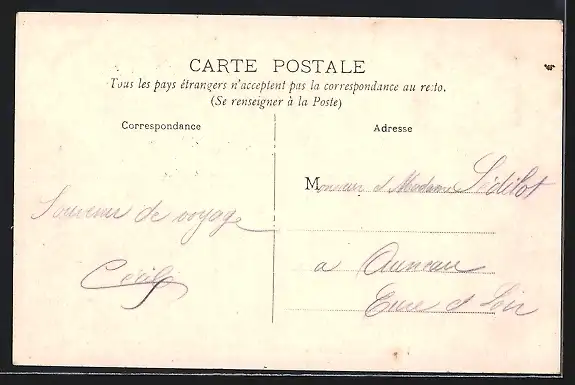 CARTE POSTALE
Tous les pays étrangers n'acceptent pas la correspondance au recto.
(Se renseigner à la Poste)
Correspondance
Adresse
Monsieur et Madame Sédillot
Souvenir de voyage
a Auneau
Cécile
Eure et Loir